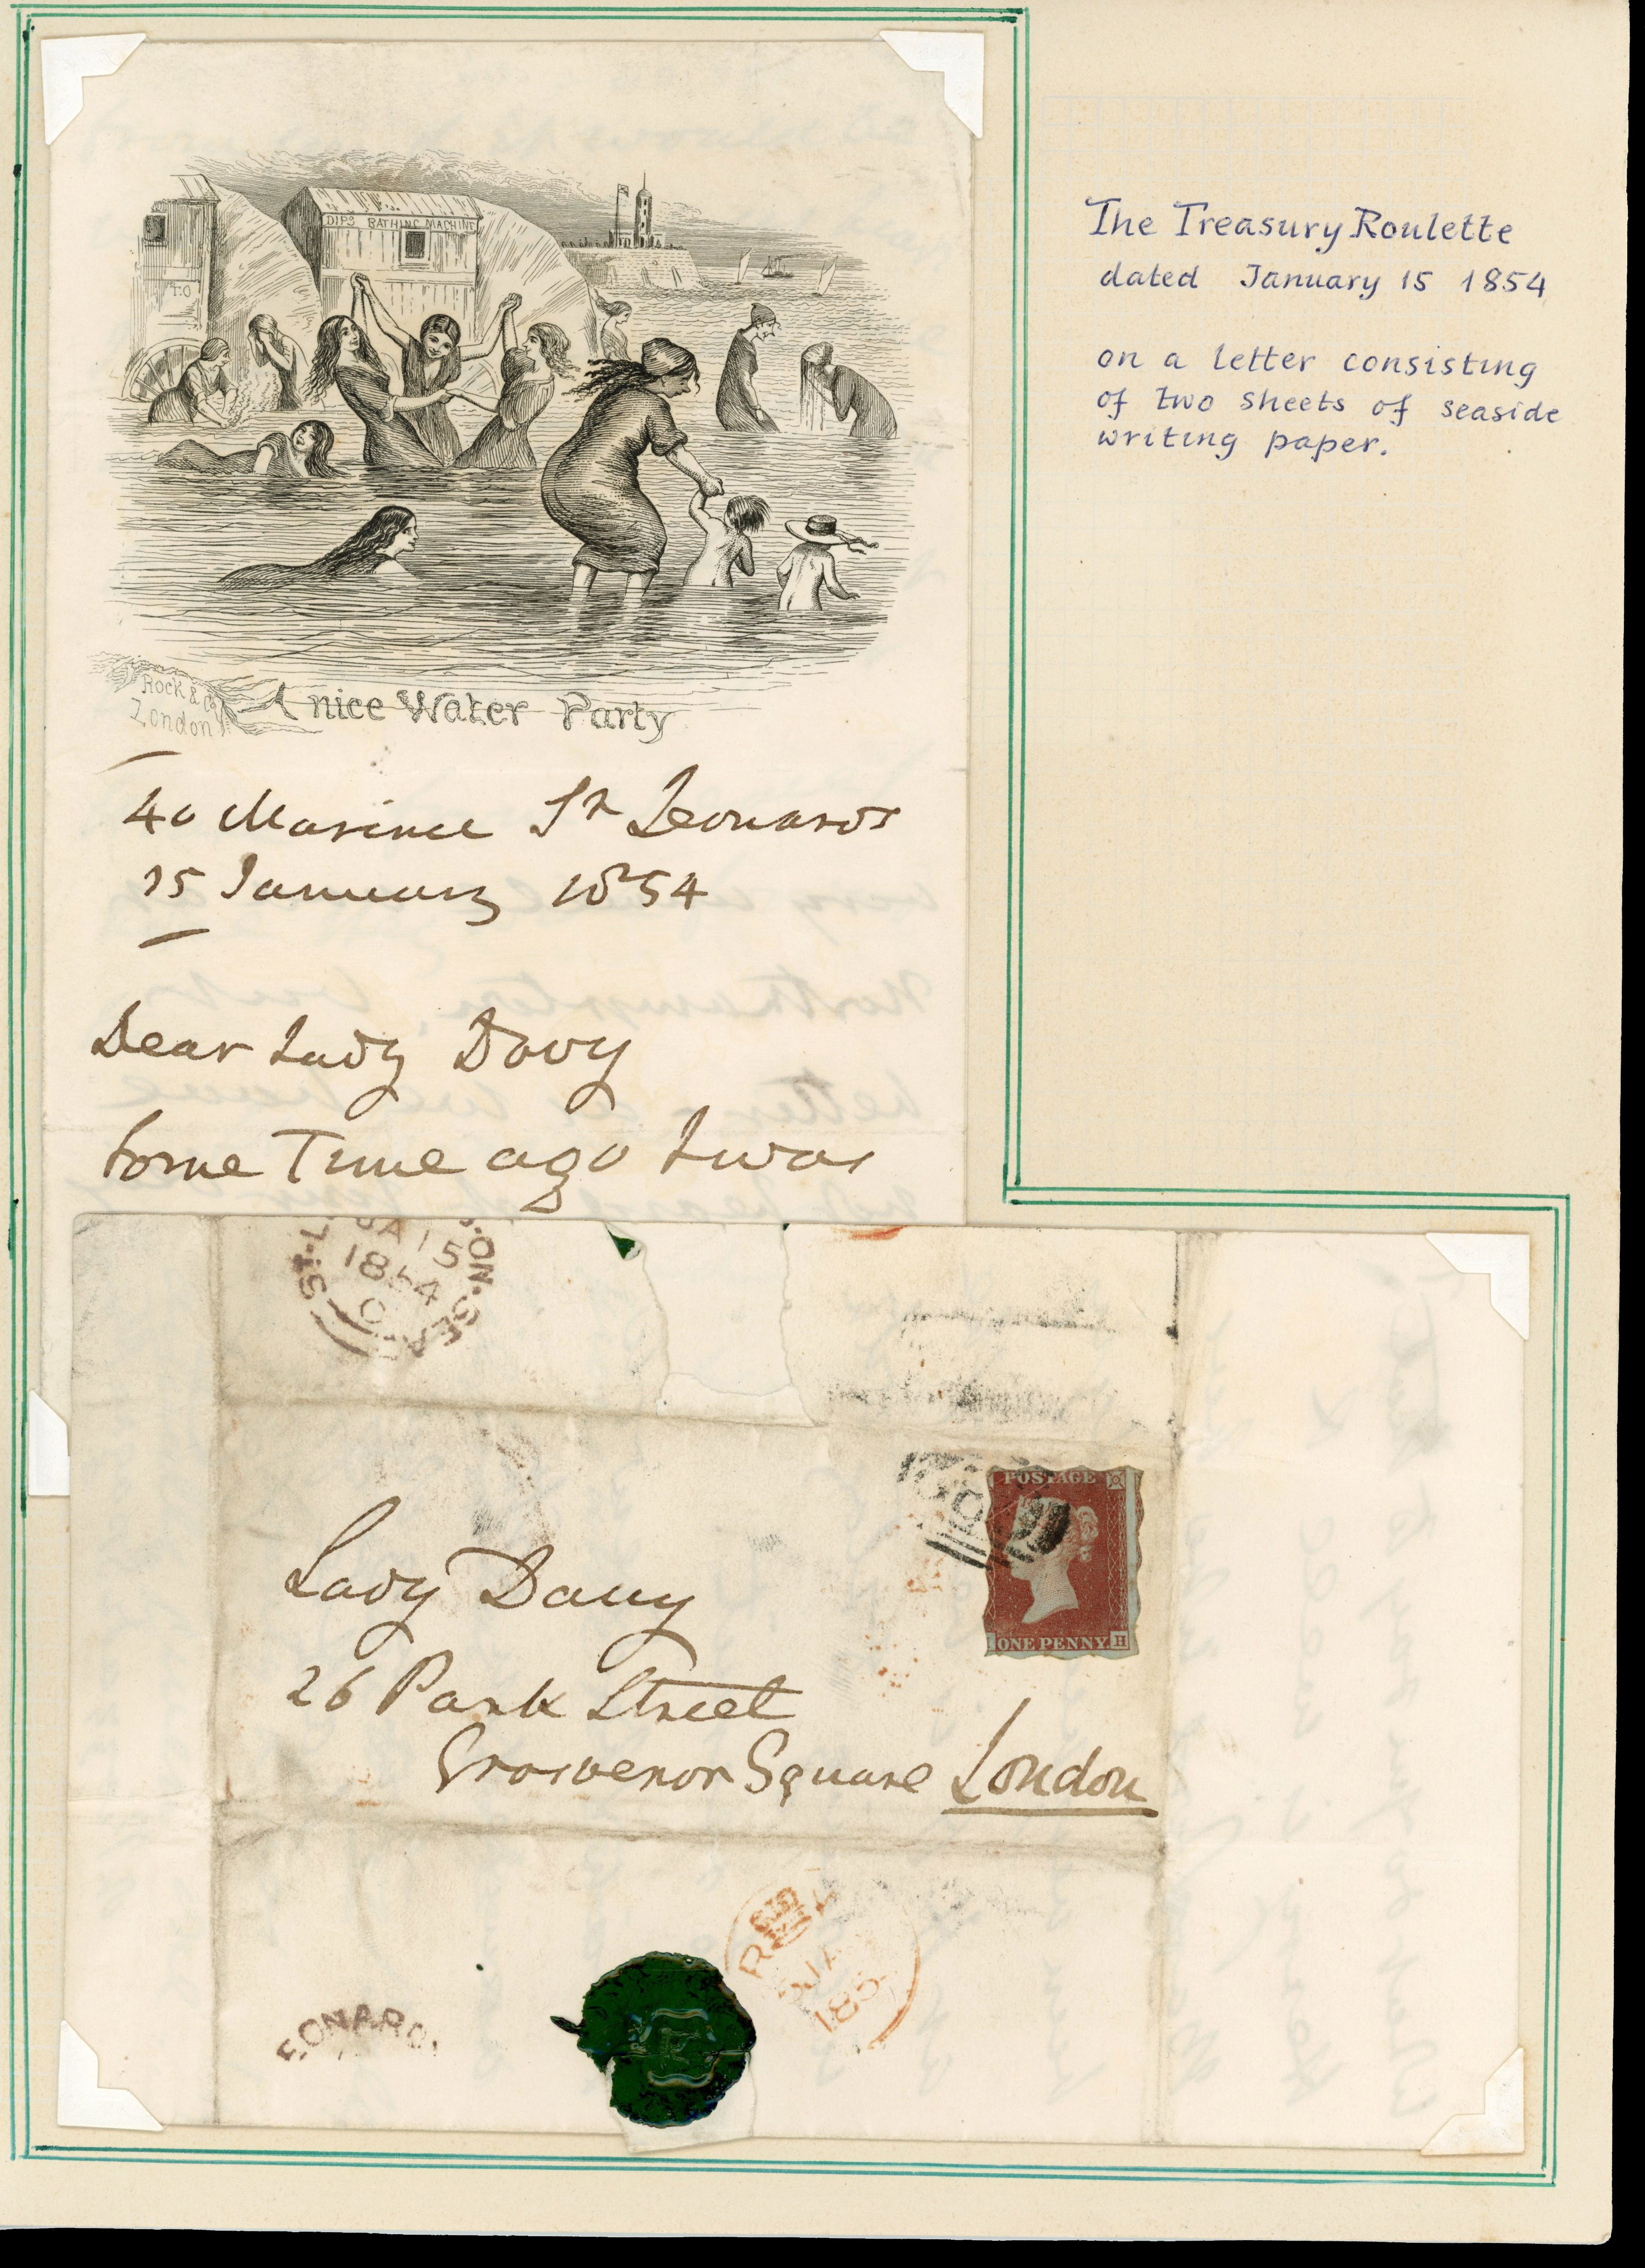 The Treasury Roulette
dated January 15 1854
on a letter consisting
of two sheets of seaside
writing paper.
DIPS BATHING MACHINE
T.O
Rock & Co
London
A nice Water Party
40 Marina St Leonards
15 January 1854
Dear Lady Davy
Some Time ago I was
JA 15
1854
ON SEA
POSTAGE
ONE PENNY.
H
Lady Davy
26 Park Street
Grosvenor Square London
EONARD
JA
18